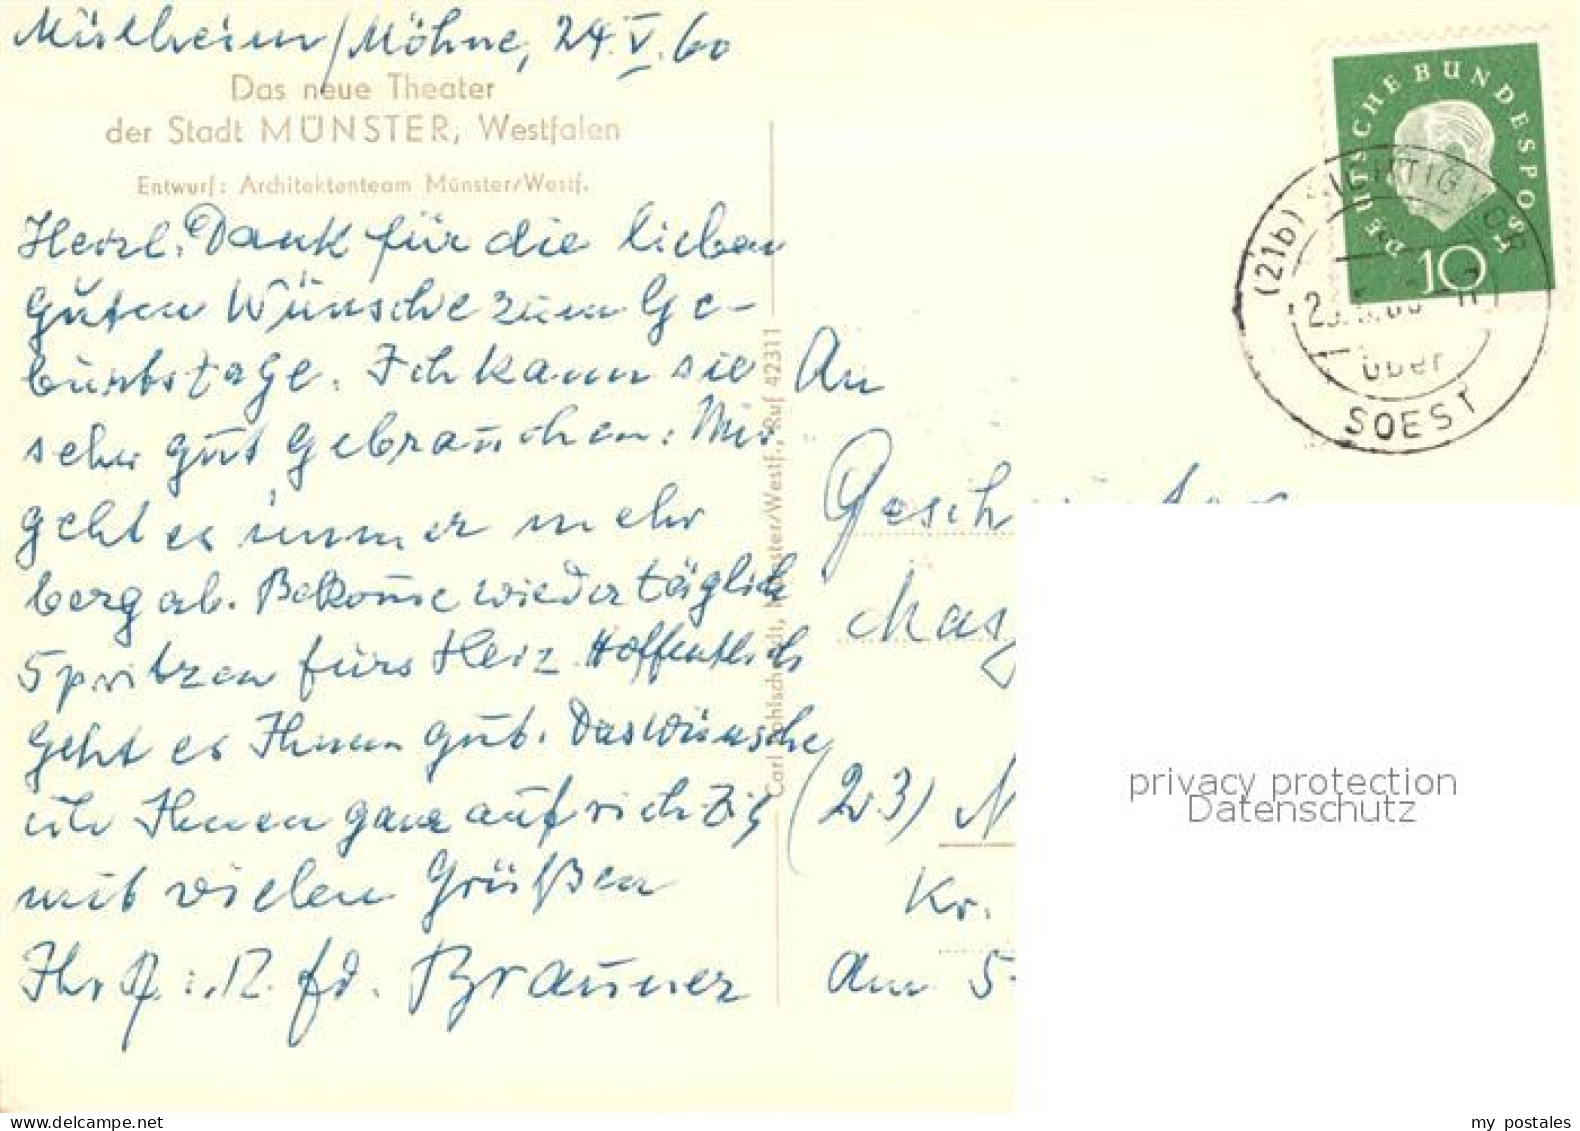 Mülheim/Möhne, 24.V.60
Das neue Theater
der Stadt MÜNSTER, Westfalen
Entwurf: Architektenteam Münster/Westf.
Herzl. Dank für die lieben
guten Wünsche zum Ge-
burtstage. Ich kann sie
sehr gut gebrauchen. Mir
geht es immer mehr
bergab. Bekomme wieder täglich
Spritzen fürs Herz. Hoffentlich
geht es Ihnen gut. Das wünsche
ich Ihnen ganz aufrichtig
mit vielen Grüßen
Ihr Brauner
Münster/Westf., Ruf 42311
DEUTSCHE BUNDESPOST
10
(21b)
über
SOEST
An
Gesch
(23) N
Kr.
am 5
privacy protection
Datenschutz
my postales